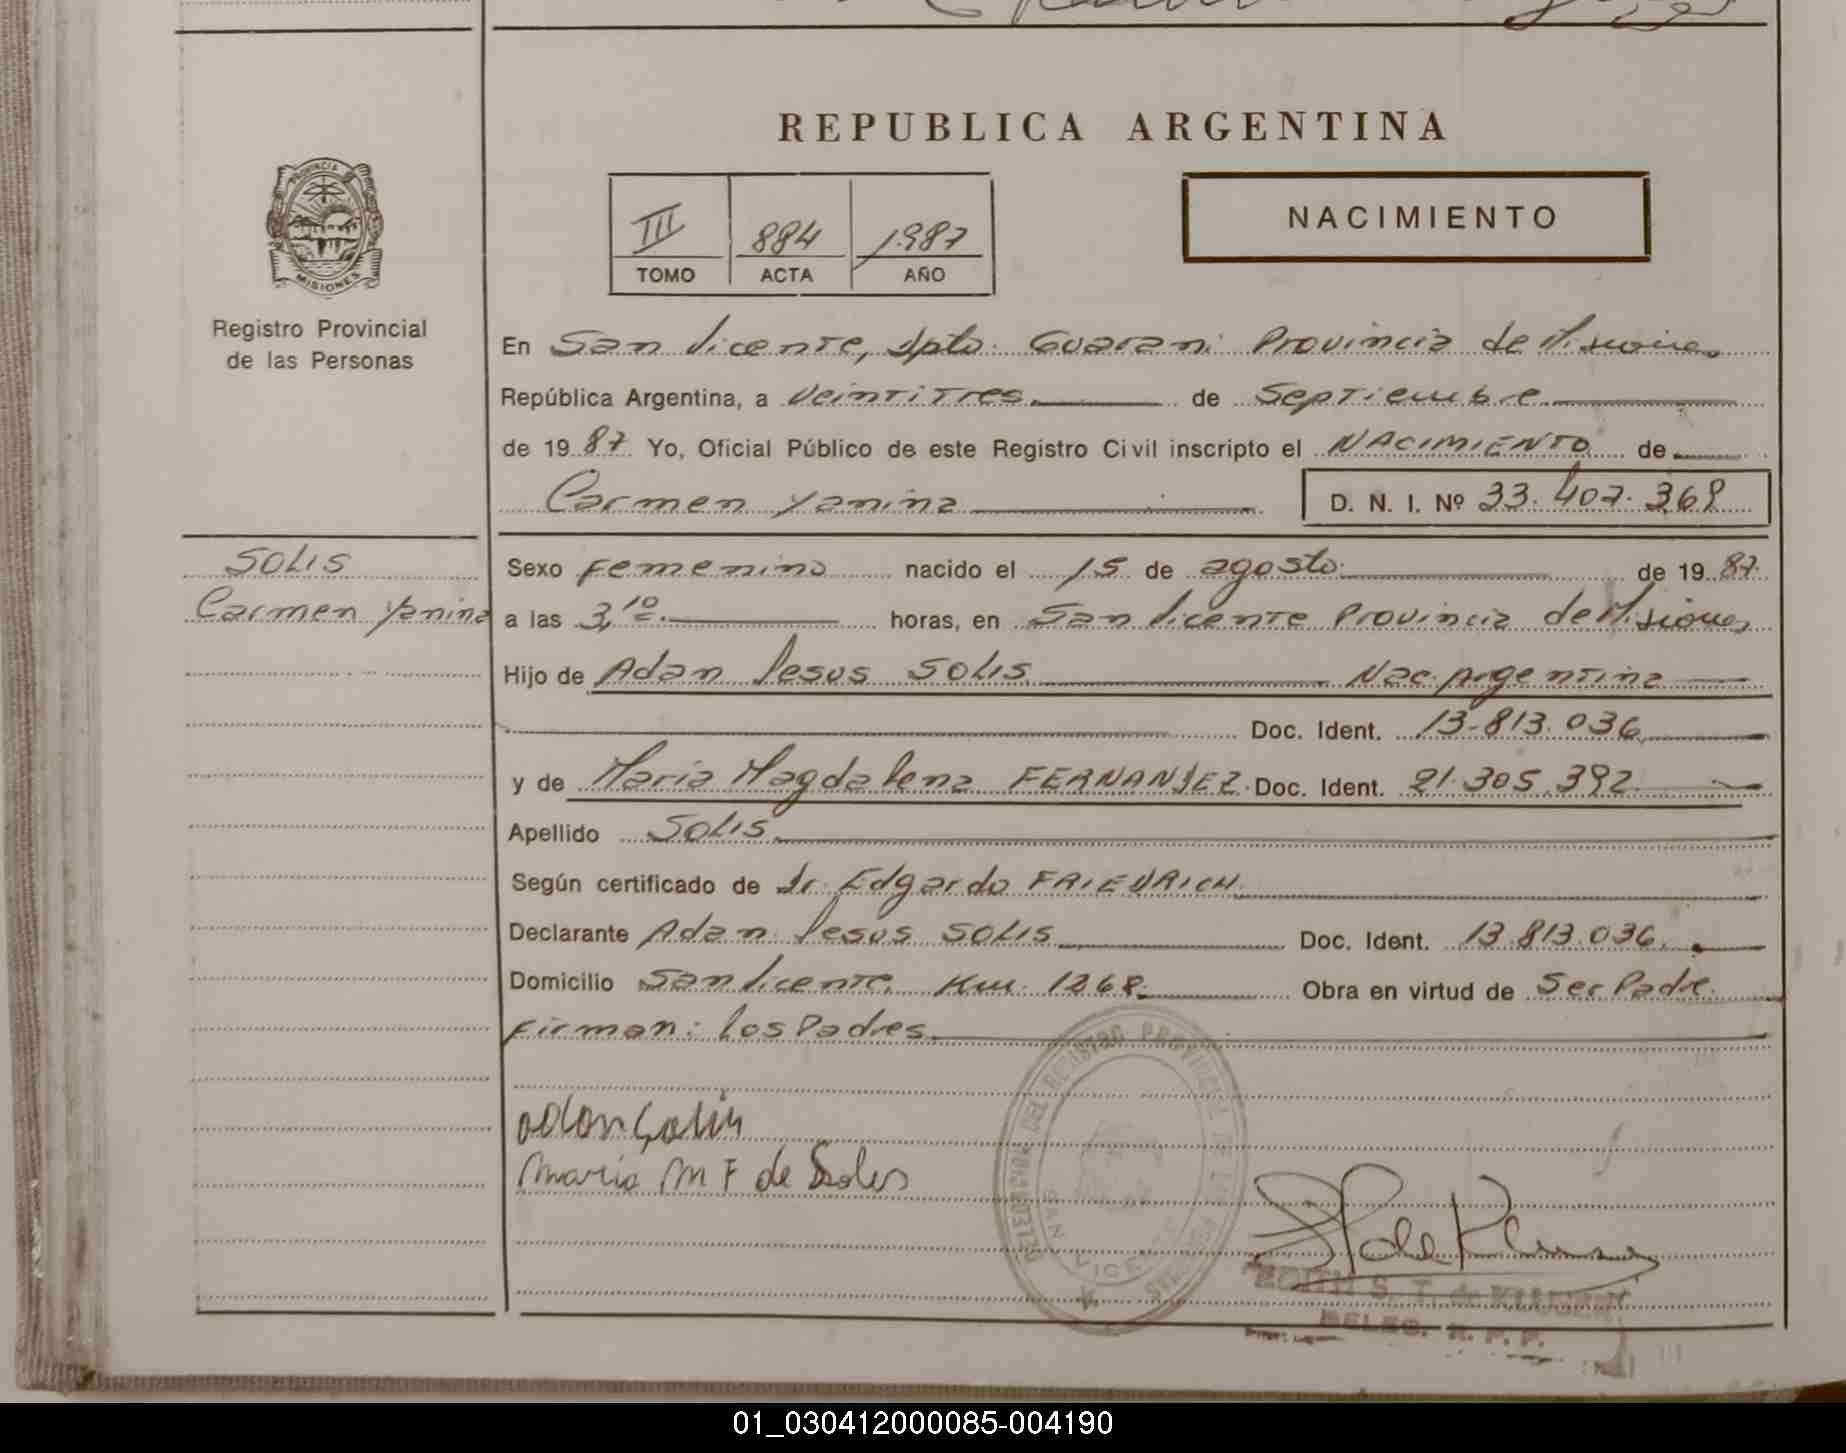 REPUBLICA ARGENTINA
PROVINCIA DE
MISIONES
Registro Provincial
de las Personas
III 884 1987
TOMO ACTA AÑO
NACIMIENTO
En San Vicente, Dpto. Guarani Provincia de Misiones
República Argentina, a Veintitres de Septiembre
de 1987 Yo, Oficial Público de este Registro Civil inscripto el NACIMIENTO de
Carmen Yanina D. N. I. Nº 33.407.368
SOLIS
Carmen Yanina
Sexo Femenino nacido el 15 de agosto de 1987.
a las 3,10 horas, en San Vicente Provincia de Misiones
Hijo de Adan Jesus SOLIS Nac. Argentina
Doc. Ident. 13.813.036
y de Maria Magdalena FERNANDEZ. Doc. Ident. 21.305.392
Apellido SOLIS
Según certificado de Dr. Edgardo FRIEDRICH
Declarante Adan Jesus SOLIS Doc. Ident. 13.813.036.
Domicilio San Vicente Km. 1268. Obra en virtud de Ser Padre.
Firman: Los Padres
Adan Solis
Maria M F de Solis
DELEGACION DEL REGISTRO PROVINCIAL DE LAS PERSONAS
SAN VICENTE
EDITH S. T. de
DELEG. R. P. P.
01_030412000085-004190